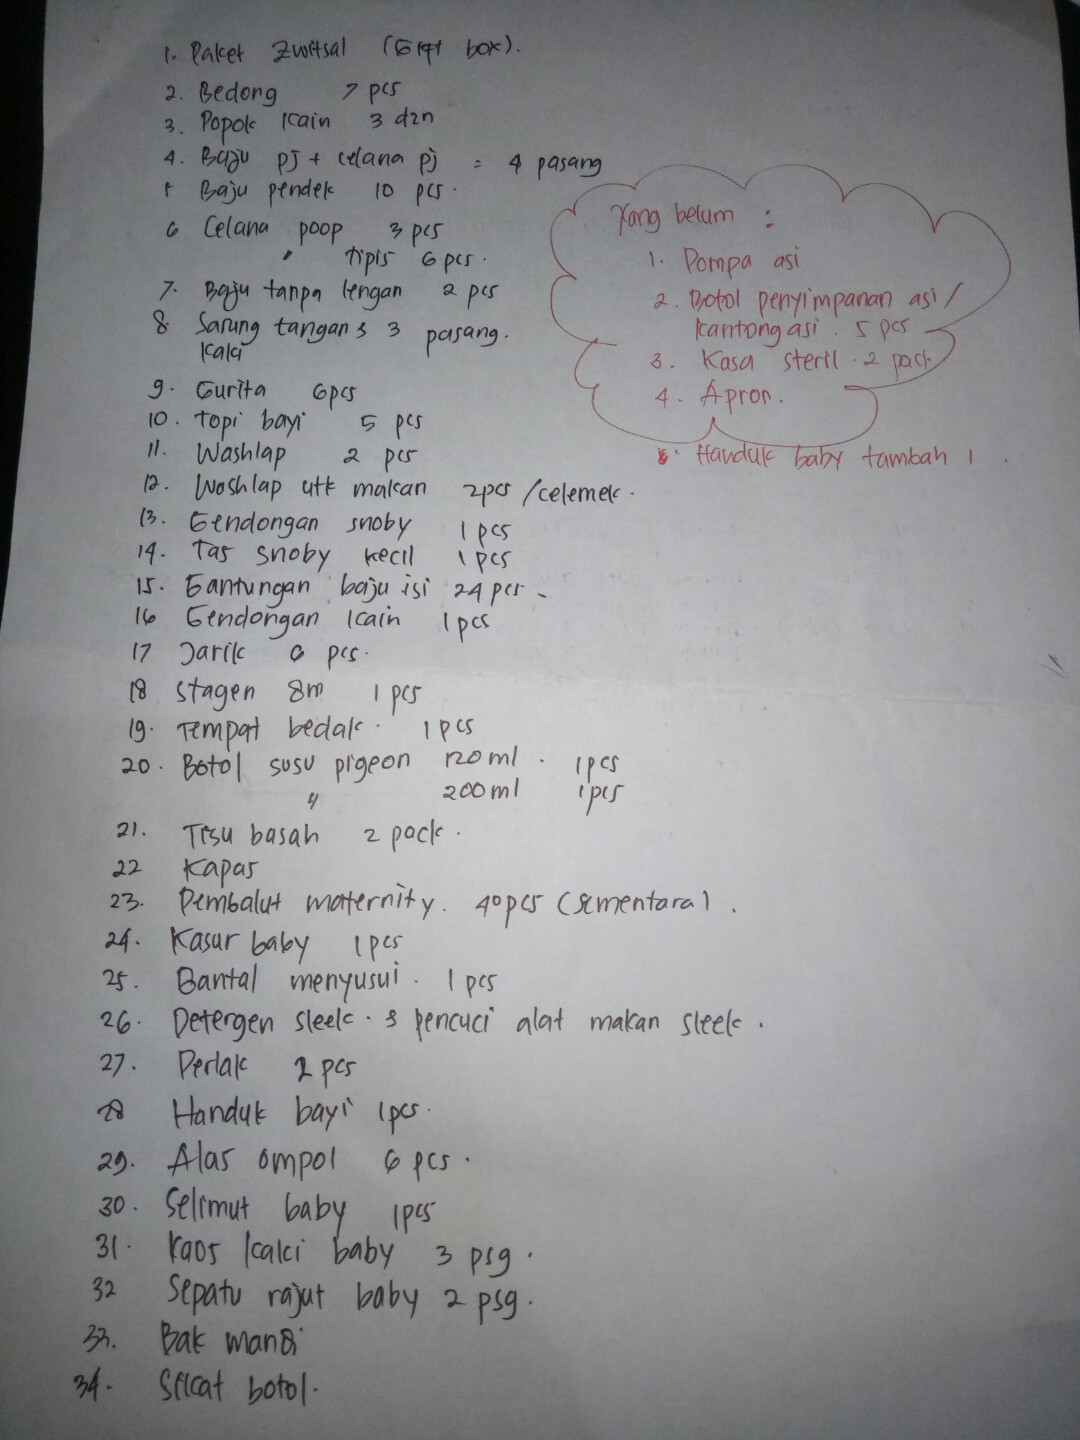 1. Paket Zwitsal (Gift box).
2. Bedong 7 pcs
3. Popok kain 3 dzn
4. Baju pj + celana pj = 4 pasang
5 Baju pendek 10 pcs.
6 Celana poop 3 pcs
" Tipis 6 pcs.
7. Baju tanpa lengan 2 pcs
8 Sarung tangan & 3 pasang.
kaki
9. Gurita 6pcs
10. Topi bayi 5 pcs
11. Washlap 2 pcs
12. Washlap utk makan 2pcs /celemek.
13. Gendongan snoby 1 pcs
14. Tas snoby kecil 1 pcs
15. Gantungan baju isi 24 pcs.
16 Gendongan kain 1 pcs
17 Jarik 6 pcs.
18 Stagen 8m 1 pcs
19. Tempat bedak. 1 pcs
20. Botol susu pigeon 120 ml. 1pcs
" 200 ml 1pcs
21. Tisu basah 2 pack.
22 Kapas
23. Pembalut maternity. 40pcs (sementara).
24. Kasur baby 1 pcs
25. Bantal menyusui. 1 pcs
26. Detergen sleek. & pencuci alat makan sleek.
27. Perlak 2 pcs
28 Handuk bayi 1pcs.
29. Alas ompol 6 pcs.
30. Selimut baby 1pcs
31. Kaos kaki baby 3 psg.
32 Sepatu rajut baby 2 psg.
33. Bak mandi
34. Sikat botol.
Yang belum :
1. Pompa asi
2. Botol penyimpanan asi /
kantong asi. 5 pcs
3. Kasa steril. 2 pack
4. Apron.
5. Handuk baby tambah 1.